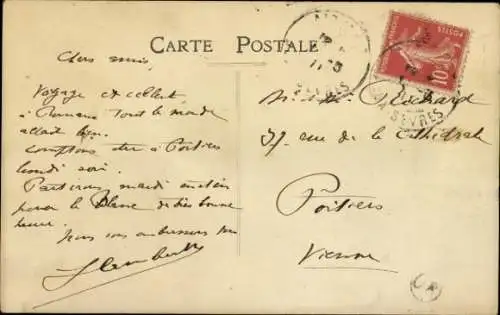 CARTE POSTALE
Chers amis,
Voyage excellent
à Romans tout le monde
allait bien.
Comptons être à Poitiers
lundi soir.
Partirons mardi matin
pour le Blanc de très bonne
heure.
Nous vous embrassons
SEVRES
POSTES
10
SEVRES
37 rue de la Cathédrale
Poitiers
Vienne